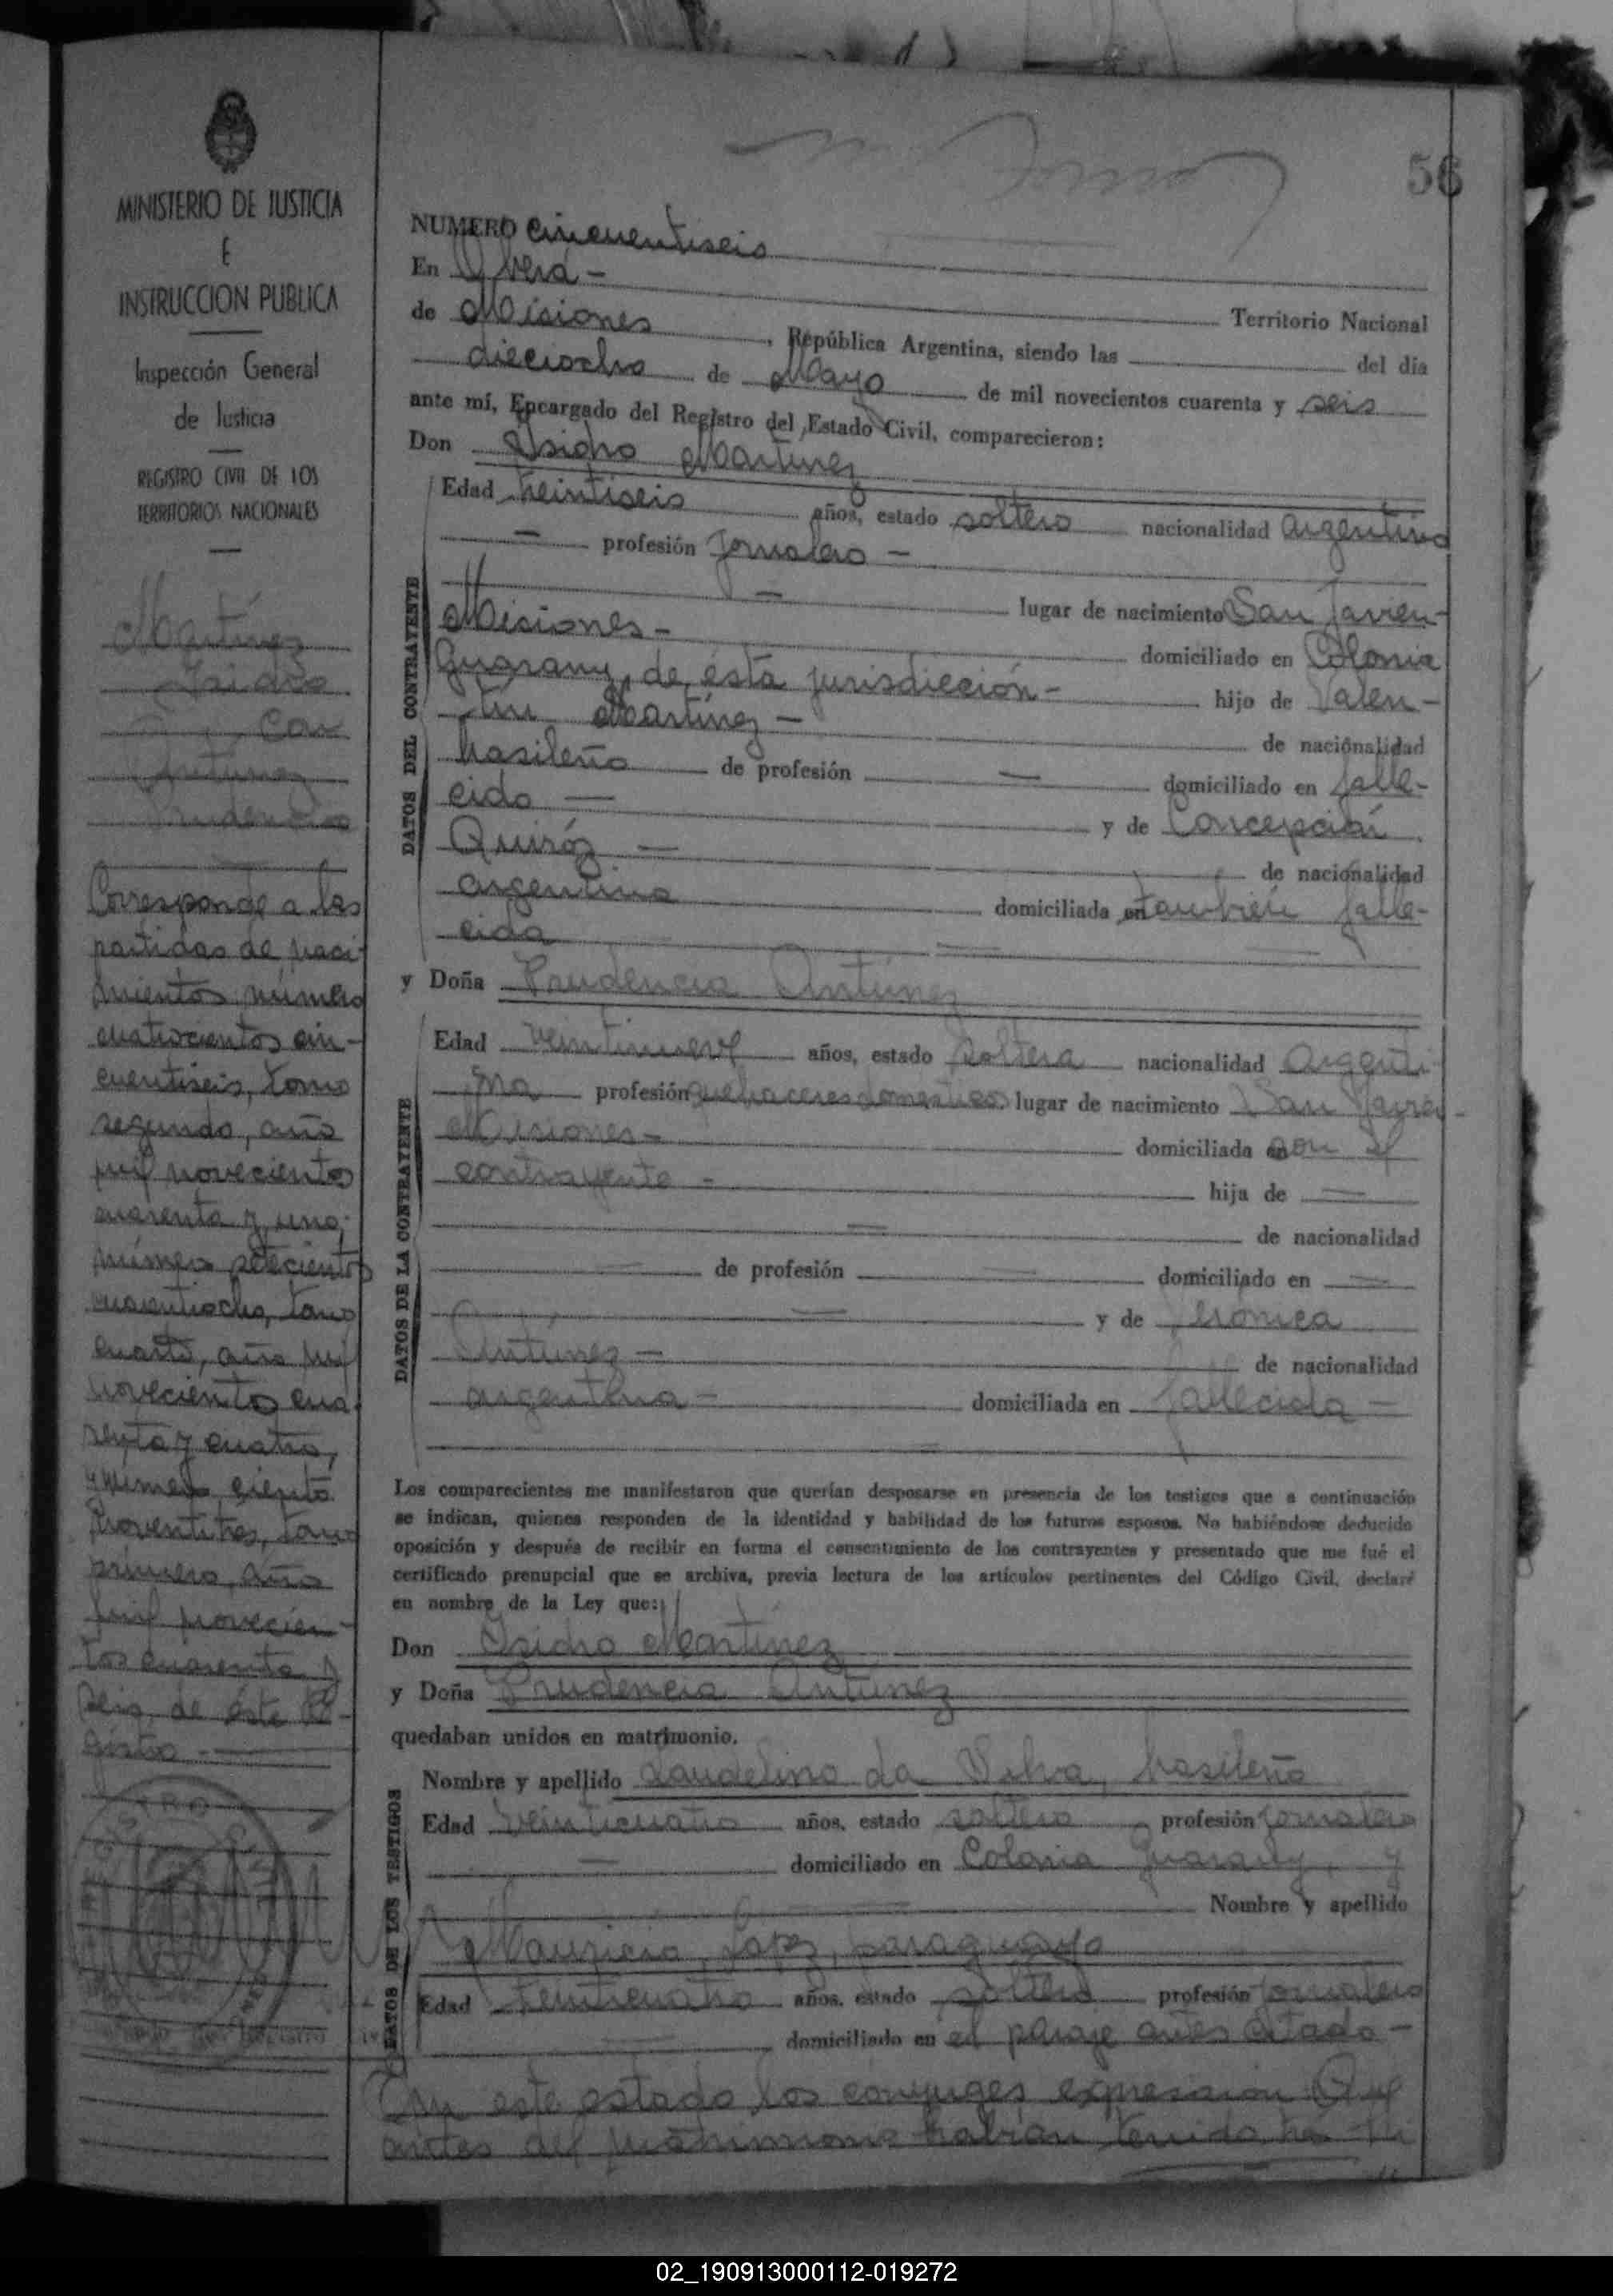 56
MINISTERIO DE JUSTICIA
E
INSTRUCCION PUBLICA
Inspección General
de Justicia
REGISTRO CIVIL DE LOS
TERRITORIOS NACIONALES
Martínez
Isidro
Con
Antunez
Prudencia
Corresponde a las
partidas de naci-
mientos número
cuatrocientos cin-
cuentiseis, tomo
segundo, año
mil novecientos
cuarenta y uno;
número setecientos
cuarentiocho, tomo
cuarto, año mil
novecientos cua-
renta y cuatro,
y número ciento
noventitres, tomo
primero, año
mil novecien-
tos cuarenta y
seis, de éste Re-
gistro -
NUMERO cincuentiseis
En Oberá -
Territorio Nacional
de Misiones, República Argentina, siendo las del día
dieciocho de Mayo de mil novecientos cuarenta y seis
ante mí, Encargado del Registro del Estado Civil, comparecieron:
Don Isidro Martinez
DATOS DEL CONTRAYENTE
Edad treintiseis años, estado soltero nacionalidad argentino
- profesión Jornalero -
- lugar de nacimiento San Javier-
Misiones - domiciliado en Colonia
Guarany, de ésta jurisdicción - hijo de Valen-
tin Martínez - de nacionalidad
brasileño de profesión — domiciliado en falle-
cido — y de Concepción
Quiróz — de nacionalidad
argentina domiciliada en también falle-
cida
y Doña Prudencia Antúnez
DATOS DE LA CONTRAYENTE
Edad veintinueve años, estado soltera nacionalidad Argenti-
na profesión quehaceres domesticos lugar de nacimiento San Javier-
Misiones - domiciliada en con el
contrayente - hija de —
— de nacionalidad
— de profesión — domiciliado en —
— y de Jerónica
Antúnez - de nacionalidad
argentina - domiciliada en fallecida -
Los comparecientes me manifestaron que querían desposarse en presencia de los testigos que a continuación
se indican, quienes responden de la identidad y habilidad de los futuros esposos. No habiéndose deducido
oposición y después de recibir en forma el consentimiento de los contrayentes y presentado que me fué el
certificado prenupcial que se archiva, previa lectura de los artículos pertinentes del Código Civil, declaré
en nombre de la Ley que:
Don Isidro Martínez
y Doña Prudencia Antúnez
quedaban unidos en matrimonio.
DATOS DE LOS TESTIGOS
Nombre y apellido Laudelino da Silva, brasileño
Edad veinticuatro años, estado soltero profesión Jornalero
— domiciliado en Colonia Guarany, y
Nombre y apellido
Mauricio Lopez, paraguayo
Edad treinticuatro años, estado soltero profesión Jornalero
— domiciliado en el paraje antes citado -
En este estado los cónyuges expresaron: Que
antes del matrimonio habían tenido
02_190913000112-019272